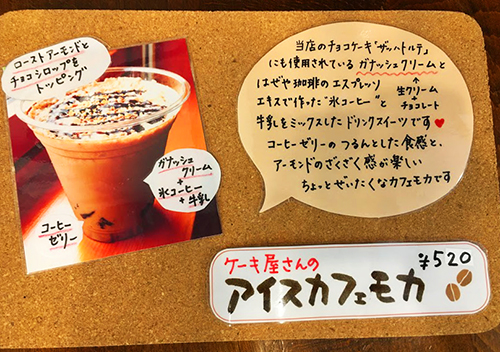 ローストアーモンドと
チョコシロップを
トッピング
ガナッシュ
クリーム
+
氷コーヒー
+牛乳
コーヒー
ゼリー
当店のチョコケーキ"ザッハトルテ"
にも使用されている ガナッシュクリームと
はぜや珈琲のエスプレッソ ↑
生クリーム
+
チョコレート
エキスで作った"氷コーヒー"と
牛乳をミックスしたドリンクスイーツです♥
コーヒーゼリーのつるんとした食感と、
アーモンドのざくざく感が楽しい
ちょっとぜいたくなカフェモカです
ケーキ屋さんの
アイスカフェモカ
¥520